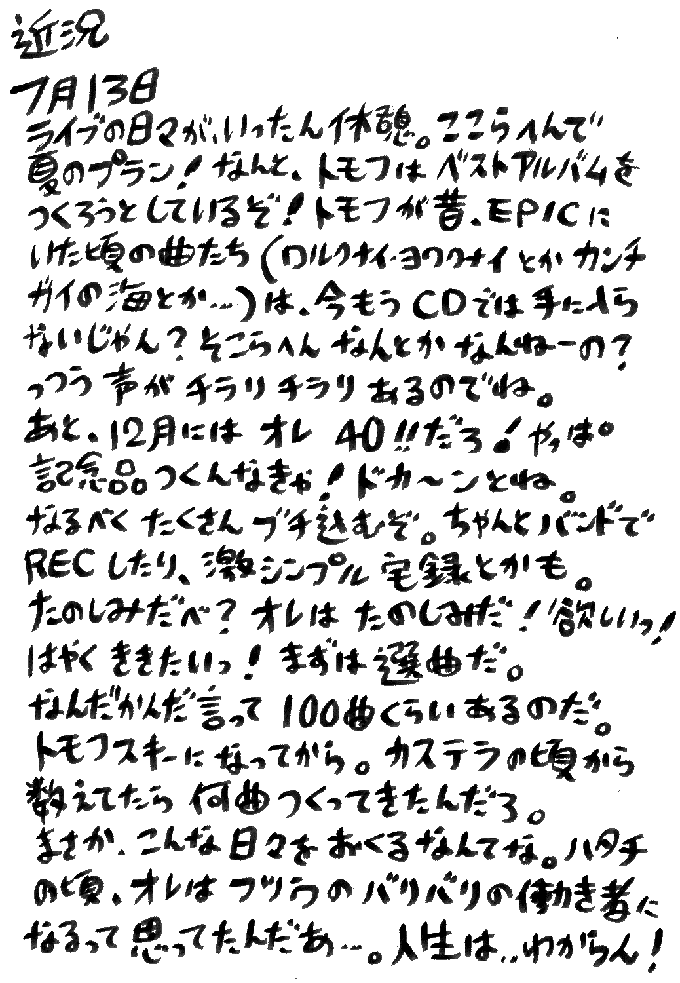 近況
7月13日
ライブの日々が、いったん休憩。ここらへんで
夏のプラン！なんと、トモフはベストアルバムを
つくろうとしているぞ！トモフが昔、EPICに
いた頃の曲たち（ロルクナイ・ヨワクナイとかカンチ
ガイの海とか…）は、今もうCDでは手に入ら
ないじゃん？そこらへんなんとかなんねーの？
っつう声がチラリチラリあるのでね。
あと、12月にはオレ40!!だろ！やっぱ
記念品つくんなきゃ！ドカ〜ンとね。
なるべくたくさんブチ込むぞ。ちゃんとバンドで
RECしたり、激シンプル宅録とかも。
たのしみだべ？オレはたのしみだ！欲しいっ！
はやくききたいっ！まずは選曲だ。
なんだかんだ言って100曲くらいあるのだ。
トモフスキーになってから。カステラの頃から
数えてたら何曲つくってきたんだろ。
まさか、こんな日々をおくるなんてな。ハタチ
の頃、オレはフツウのバリバリの働き者に
なるって思ってたんだあ…。人生は‥わからん！